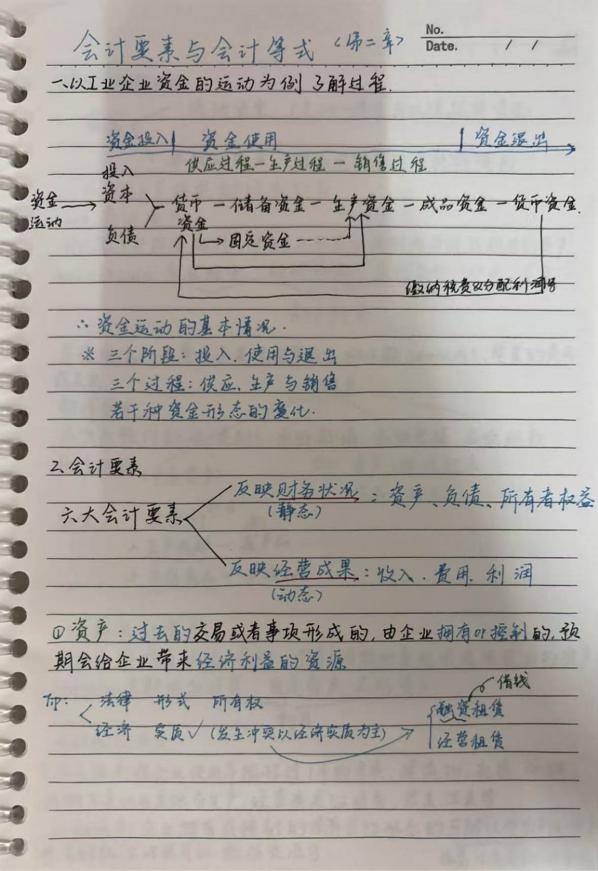 会计要素与会计等式（第二章）
No.
Date. / /
一、以工业企业资金的运动为例了解过程.
资金投入 资金使用 资金退出
供应过程—生产过程—销售过程
投入
资本
资金
货币—储备资金—生产资金—成品资金—货币资金
资金
负债
固定资金
缴纳税费以分配利润等
∴资金运动的基本情况.
※ 三个阶段：投入、使用与退出
三个过程：供应、生产与销售
若干种资金形态的变化.
2.会计要素
反映财务状况：资产、负债、所有者权益
（静态）
六大会计要素
反映经营成果：收入、费用、利润
（动态）
①资产：过去的交易或者事项形成的，由企业拥有or控制的，预
期会给企业带来经济利益的资源
借钱
Tip：法律 形式 所有权
融资租赁
经济 实质✓（发生冲突以经济实质为主）
经营租赁